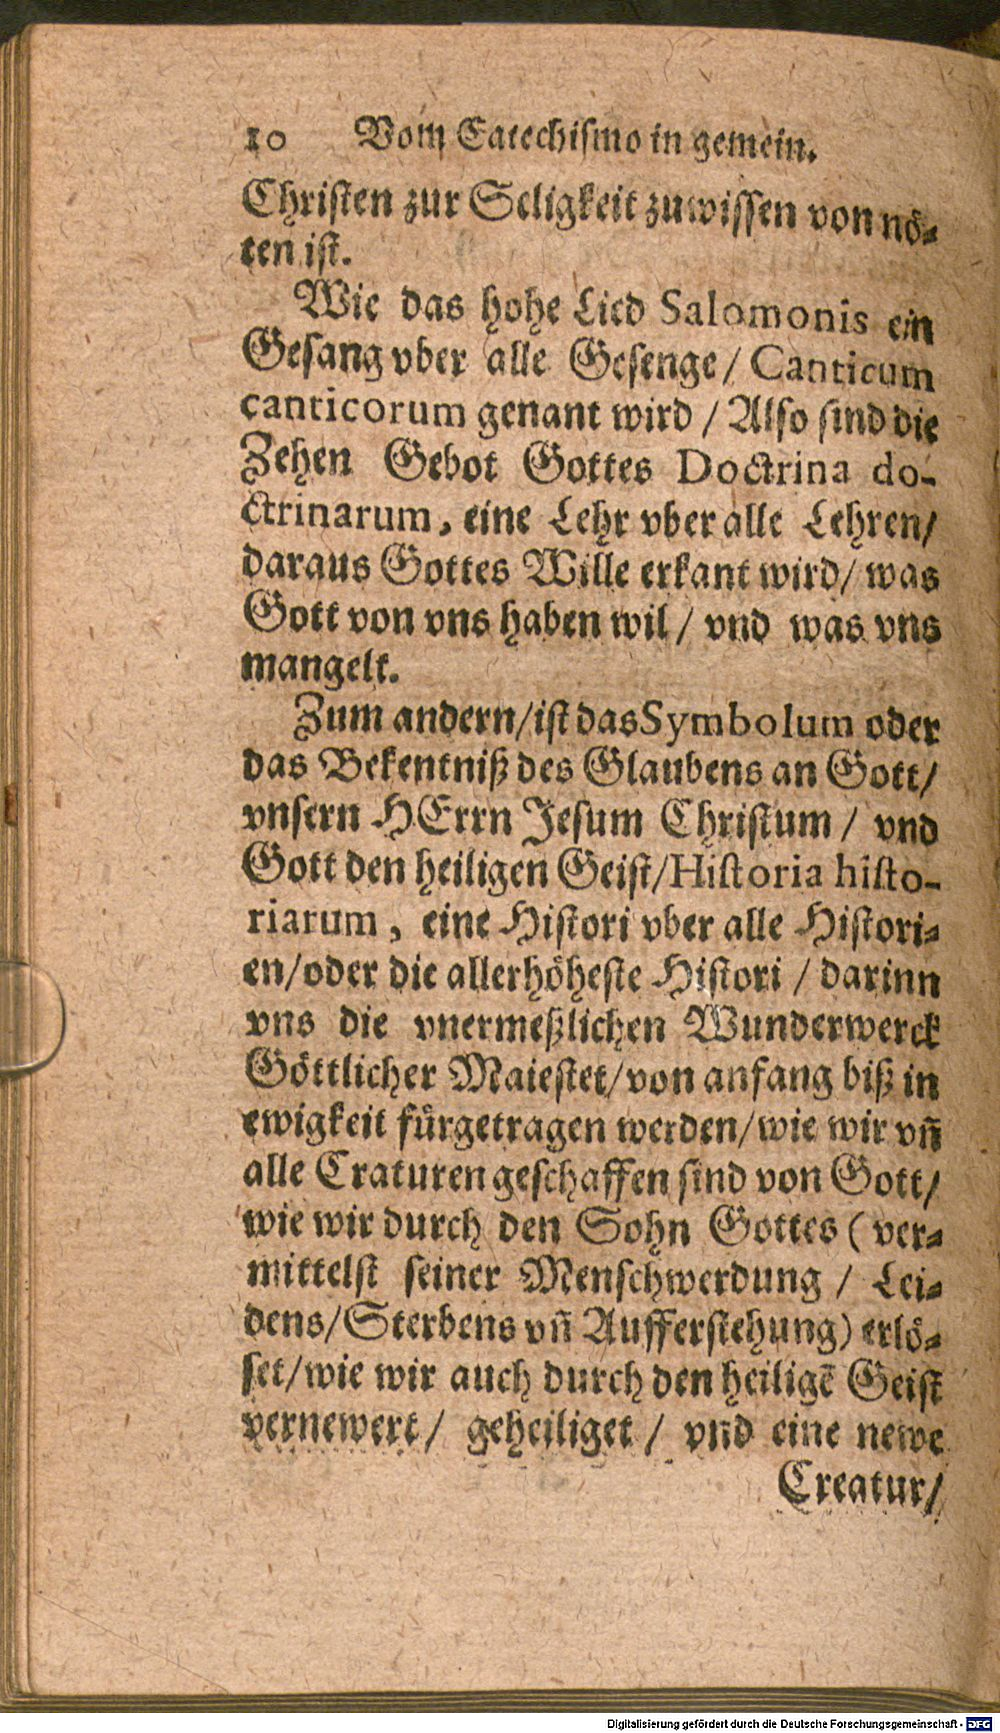 10 Vom Catechismo in gemein.
Christen zur Seligkeit zuwissen von nö-
ten ist.
Wie das hohe Lied Salomonis ein
Gesang vber alle Gesenge / Canticum
canticorum genant wird / Also sind die
Zehen Gebot Gottes Doctrina do-
ctrinarum, eine Lehr vber alle Lehren/
daraus Gottes Wille erkant wird/ was
Gott von vns haben wil / vnd was vns
mangelt.
Zum andern/ist das Symbolum oder
das Bekentniß des Glaubens an Gott/
vnsern HErrn Jesum Christum / vnd
Gott den heiligen Geist/Historia histo-
riarum, eine Histori vber alle Histori-
en/oder die allerhöheste Histori / darinn
vns die vnermeßlichen Wunderwerck
Göttlicher Maiestet/von anfang biß in
ewigkeit fürgetragen werden/wie wir vñ
alle Craturen geschaffen sind von Gott/
wie wir durch den Sohn Gottes (ver-
mittelst seiner Menschwerdung / Lei-
dens/Sterbens vñ Aufferstehung) erlö-
set/wie wir auch durch den heiligē Geist
vernewert/ geheiliget / vnd eine newe
Creatur/
Digitalisierung gefördert durch die Deutsche Forschungsgemeinschaft - DFG